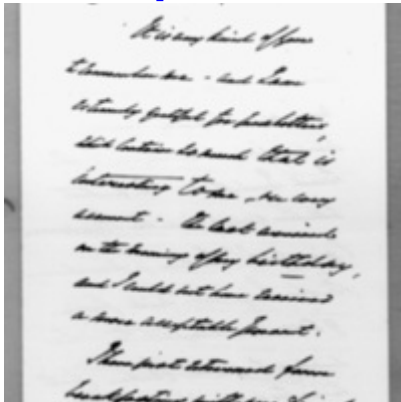 It is very kind of you
to remember me - and I am
extremely grateful for your letters,
which contain so much that is
interesting to me, on every
account - The last arrived
on the evening of my birthday,
and I could not have received
a more acceptable present.
I have just returned from